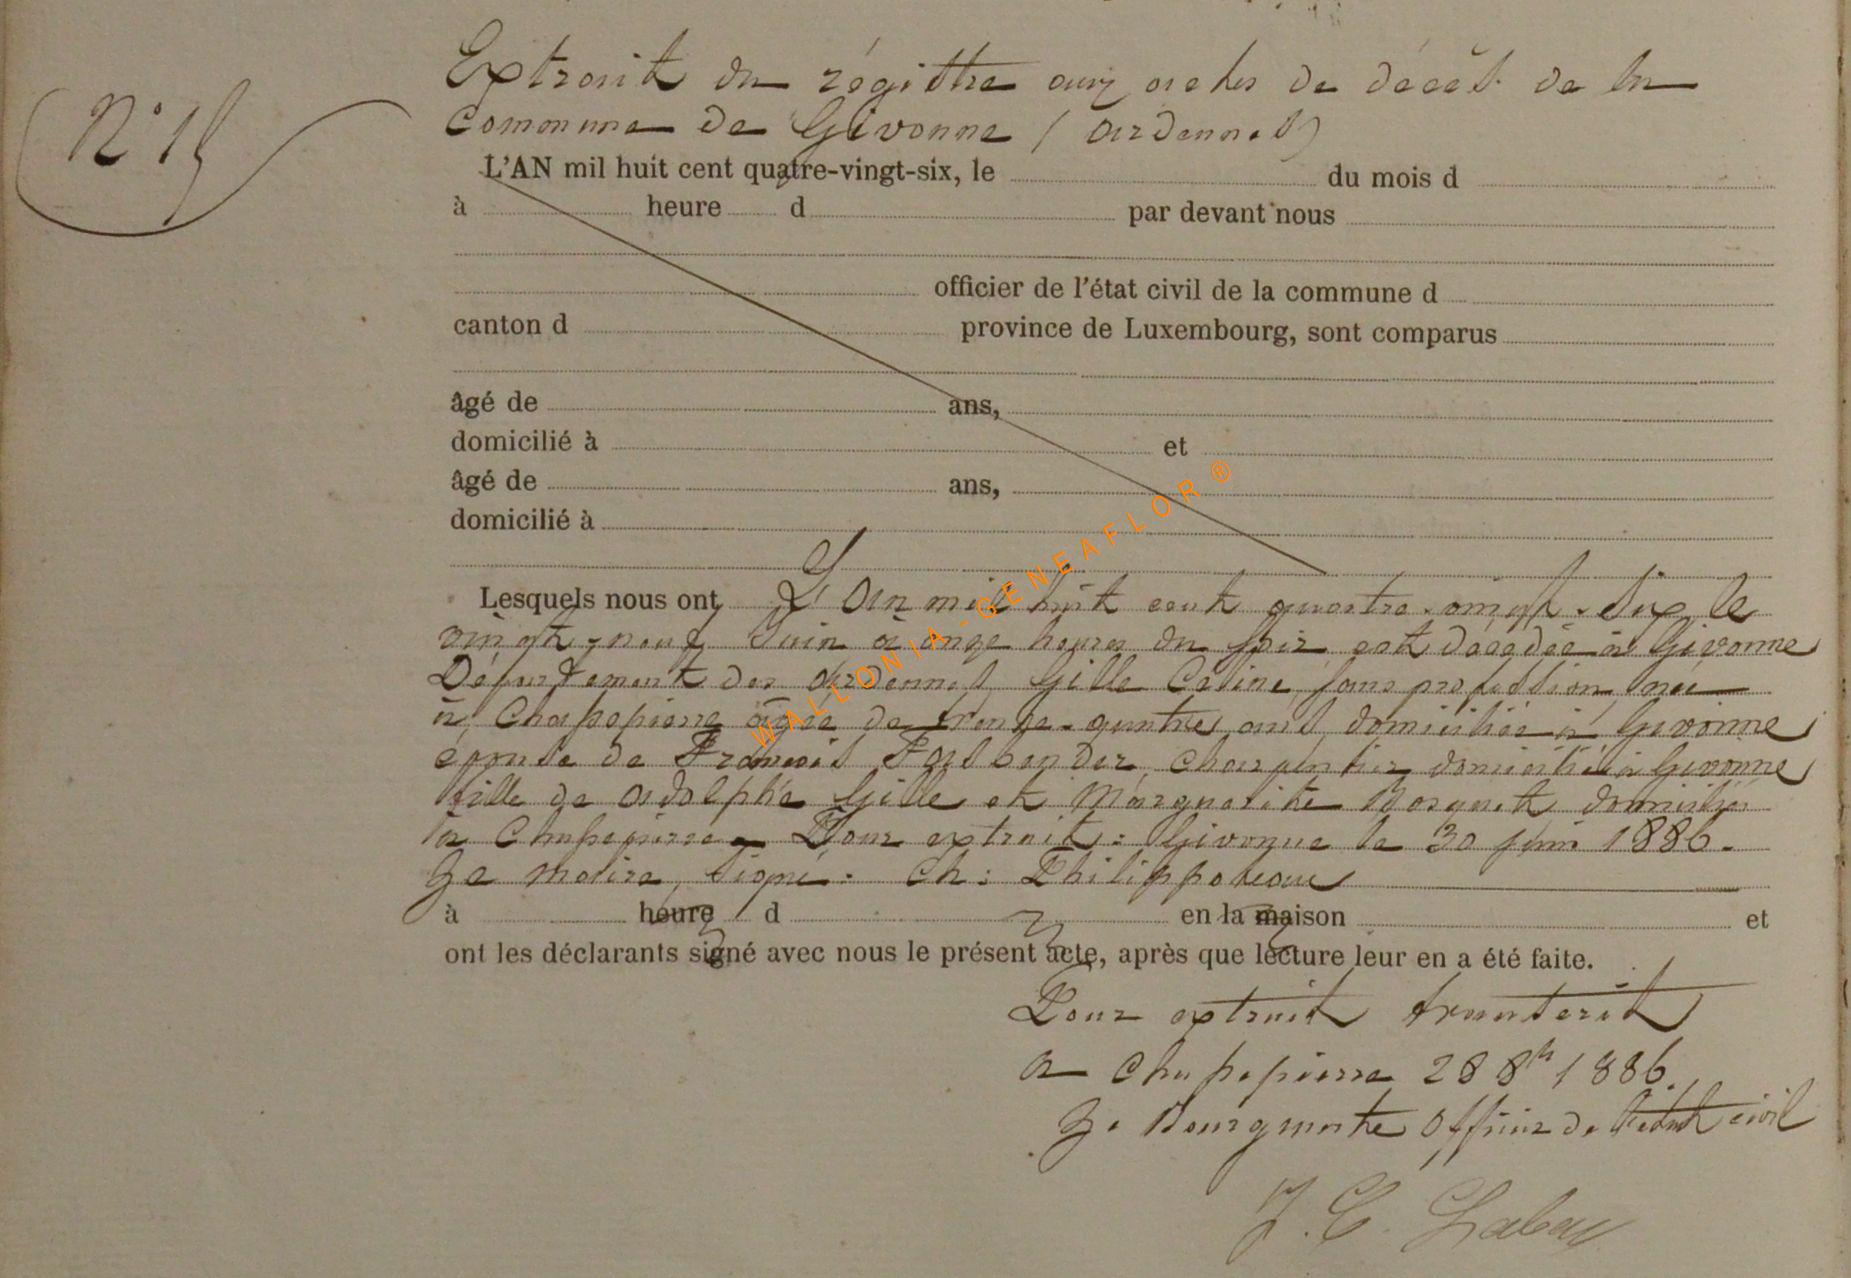 Extrait du régistre aux actes de décès de la
Commune de Givonne (Ardennes)
N° 15
L'AN mil huit cent quatre-vingt-six, le du mois d
à heure d par devant nous
officier de l'état civil de la commune d
canton d province de Luxembourg, sont comparus
âgé de ans,
domicilié à et
âgé de ans,
domicilié à
WALLONIA-GENEAFLOR ®
Lesquels nous ont L'an mil huit cent quatre-vingt-six le
vingt-neuf Juin à onze heures du soir est décédée à Givonne
Département des Ardennes Gille Céline, sans profession, née
à Chassepierre âgée de trente-quatre ans, domiciliée à Givonne
épouse de François Fasbender, charpentier domicilié à Givonne
fille de Adolphe Gille et Marguerite domiciliés
à Chassepierre Pour extrait : Givonne le 30 juin 1886.
Le maire, signé : Ch : Philippoteaux
à heure d en la maison et
ont les déclarants signé avec nous le présent acte, après que lecture leur en a été faite.
Pour extrait transcrit
à Chassepierre 28 8bre 1886.
Le Bourgmestre Officier de l'état civil
J. C.